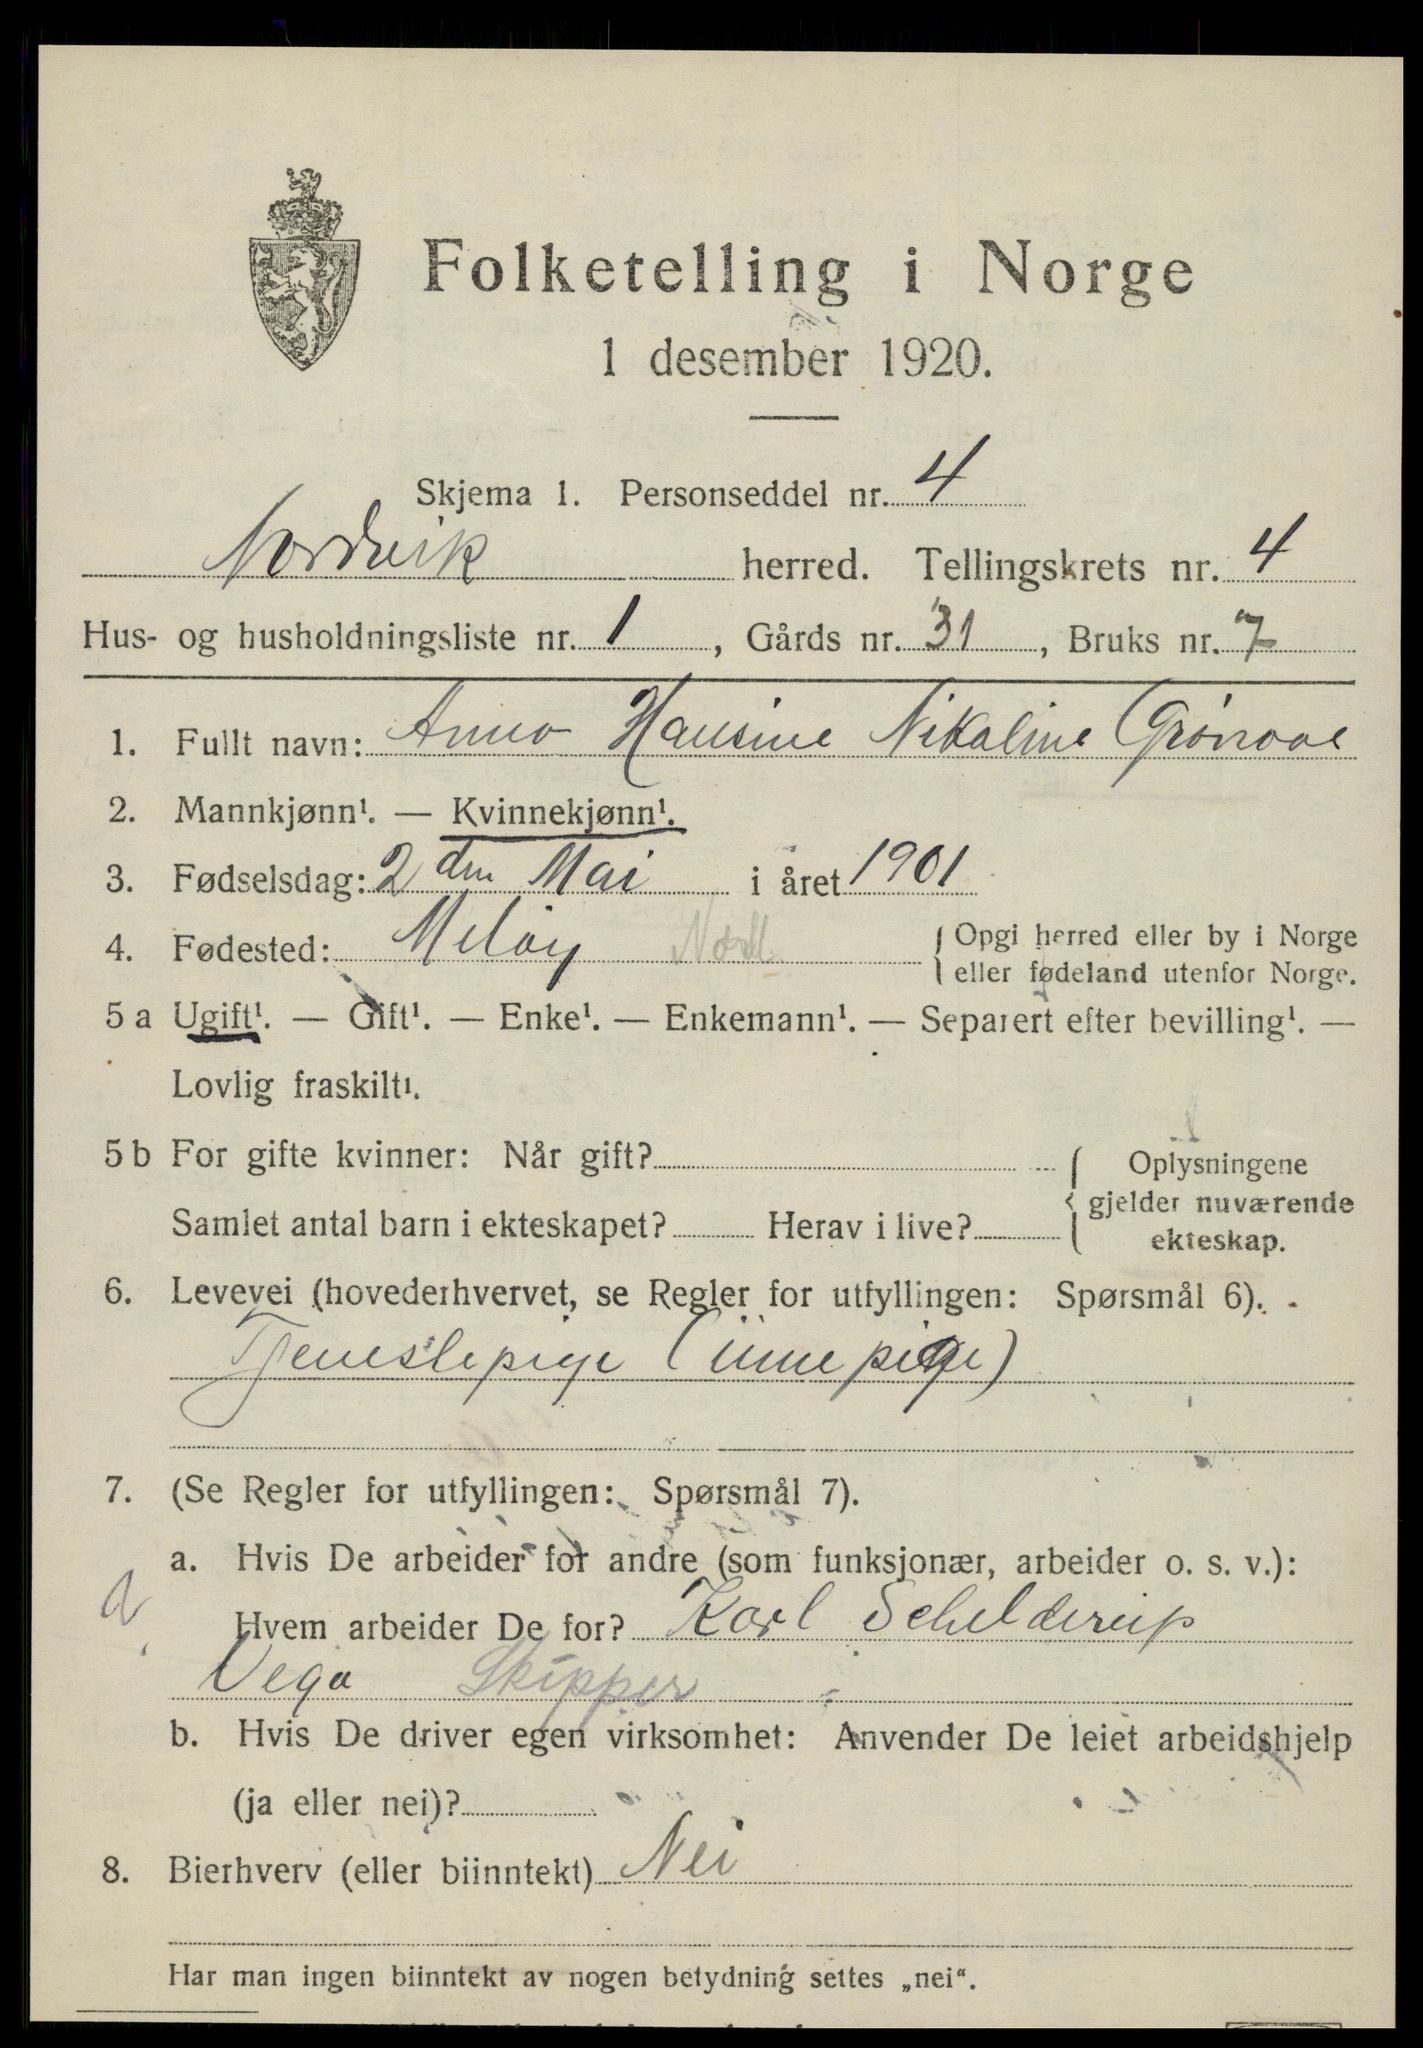 Folketelling i Norge
1 desember 1920.
Skjema 1. Personseddel nr. 4
Nordvik herred. Tellingskrets nr. 4
Hus- og husholdningsliste nr. 1, Gårds nr. 31, Bruks nr. 7
1. Fullt navn: Anna Hansine Nikoline
2. Mannkjønn¹. — Kvinnekjønn¹.
3. Fødselsdag: 2 den Mai i året 1901
4. Fødested: Meløy Nordl. {Opgi herred eller by i Norge
eller fødeland utenfor Norge.
5 a Ugift¹. — Gift¹. — Enke¹. — Enkemann¹. — Separert efter bevilling¹. —
Lovlig fraskilt¹.
5 b For gifte kvinner: Når gift? { Oplysningene
Samlet antal barn i ekteskapet? Herav i live? gjelder nuværende
ekteskap.
6. Levevei (hovederhvervet, se Regler for utfyllingen: Spørsmål 6).
Tjenestepige (innepige)
7. (Se Regler for utfyllingen: Spørsmål 7).
a. Hvis De arbeider for andre (som funksjonær, arbeider o. s. v.):
Hvem arbeider De for? Karl Schelderup
Vega Skipper
b. Hvis De driver egen virksomhet: Anvender De leiet arbeidshjelp
(ja eller nei)?
8. Bierhverv (eller biinntekt) Nei
Har man ingen biinntekt av nogen betydning settes „nei“.